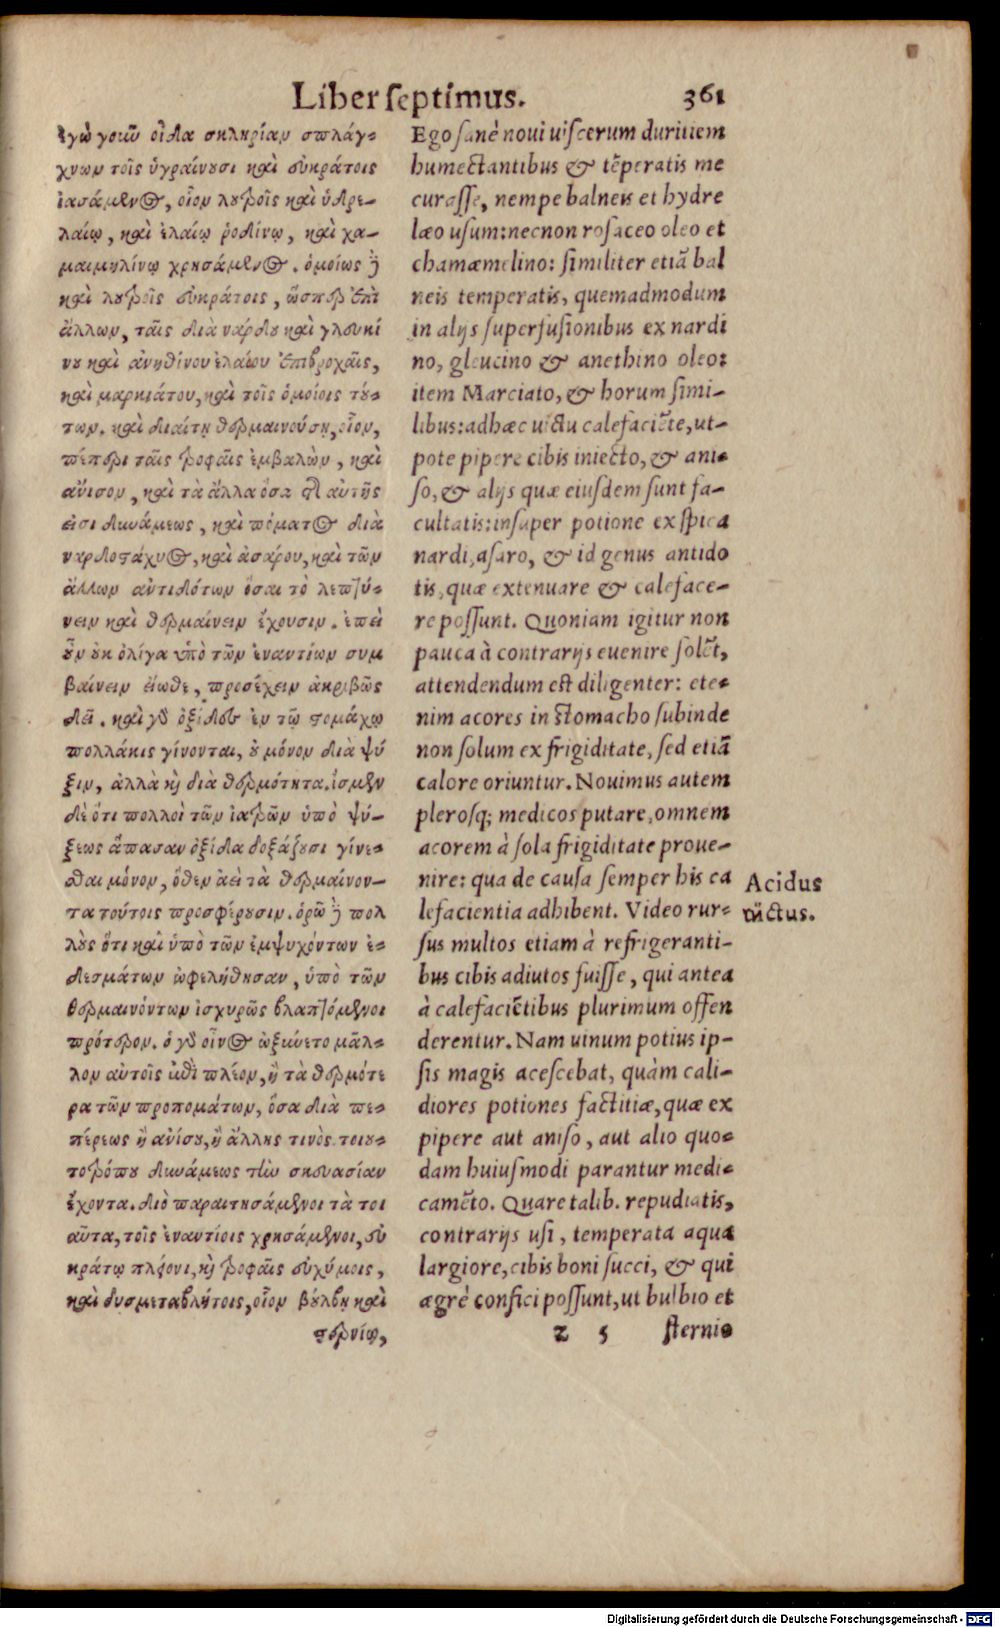 Liber septimus. 361
ἐγὼ γοιῶ οἶδα σκληρίαν σπλάγ-
χνων τοῖς ὑγραίνουσι καὶ εὐκράτοις
ἰασάμενος, οἷον λουτροῖς καὶ ὑδρε-
λαίῳ, καὶ ἐλαίῳ ῥοδίνῳ, καὶ χα-
μαιμηλίνῳ χρησάμενος. ὁμοίως δὲ
καὶ λουτροῖς εὐκράτοις, ὥσπερ ἐπὶ
ἄλλων, ταῖς διὰ νάρδου καὶ γλευκί
νου καὶ ἀνηθίνου ἐλαίου ἐπιβροχαῖς,
καὶ μαρκιάτου, καὶ τοῖς ὁμοίοις τού-
των. καὶ διαίτῃ θερμαινούσῃ, οἷον,
πέπερι ταῖς τροφαῖς ἐμβαλὼν, καὶ
ἄνισον, καὶ τὰ ἄλλα ὅσα τῆ αὐτῆς
εἰσι δυνάμεως, καὶ πόματος διὰ
ναρδοστάχυος, καὶ ἀσάρου, καὶ τῶν
ἄλλων ἀντιδότων ὅσαι τὸ λεπτύ-
νειν καὶ θερμαίνειν ἔχουσιν. ἐπεὶ
οὖν οὐκ ὀλίγα ὑπὸ τῶν ἐναντίων συμ
βαίνειν εἴωθε, προσέχειν ἀκριβῶς
δεῖ. καὶ γὰρ ὀξίδες ἐν τῷ στομάχῳ
πολλάκις γίνονται, οὐ μόνον διὰ ψύ
ξιν, ἀλλὰ καὶ διὰ θερμότητα. ἴσμεν
δὲ ὅτι πολλοὶ τῶν ἰατρῶν ὑπὸ ψύ-
ξεως ἅπασαν ὀξίδα δοξάζουσι γίνε-
σθαι μόνον, ὅθεν ἀεὶ τὰ θερμαίνον-
τα τούτοις προσφέρουσιν. ὁρῶ δὲ πολ
λοὺς ὅτι καὶ ὑπὸ τῶν ἐμψυχόντων ἐ-
δεσμάτων ὠφελήθησαν, ὑπὸ τῶν
θερμαινόντων ἰσχυρῶς βλαπτόμενοι
πρότερον. ὁ γὰρ οἶνος ὠξύνετο μᾶλ-
λον αὐτοῖς ἐπὶ πλέον, ἢ τὰ θερμότε
ρα τῶν προπομάτων, ὅσα διὰ πε-
πέρεως ἢ ἀνίσου, ἢ ἄλλης τινὸς τοιου-
τοτρόπου δυνάμεως τὴν σκευασίαν
ἔχοντα. διὸ παραιτησάμενοι τὰ τοι
αῦτα, τοῖς ἐναντίοις χρησάμενοι, εὐ
κράτῳ πλείονι, καὶ τροφαῖς εὐχύμοις,
καὶ δυσμεταβλήτοις, οἷον βούλβῃ καὶ
στερνίῳ,
Ego sanè noui uiscerum duritiem
humectantibus & tẽperatis me
curasse, nempe balneis et hydre
læo usum: necnon rosaceo oleo et
chamæmelino: similiter etiã bal
neis temperatis, quemadmodum
in alijs superfusionibus ex nardi
no, gleucino & anethino oleo:
item Marciato, & horum simi-
libus: adhæc uictu calefaciẽte, ut-
pote pipere cibis iniecto, & ani-
so, & alijs quæ eiusdem sunt fa-
cultatis: insuper potione ex spica
nardi, asaro, & id genus antido
tis, quæ extenuare & caleface-
re possunt. Quoniam igitur non
pauca à contrarijs euenire solẽt,
attendendum est diligenter: ete-
nim acores in stomacho subinde
non solum ex frigiditate, sed etiã
calore oriuntur. Nouimus autem
plerosq; medicos putare, omnem
acorem à sola frigiditate proue-
nire: qua de causa semper his ca
lefacientia adhibent. Video rur-
sus multos etiam à refrigeranti-
bus cibis adiutos fuisse, qui antea
à calefaciẽtibus plurimum offen
derentur. Nam uinum potius ip-
sis magis acescebat, quàm cali-
diores potiones factitiæ, quæ ex
pipere aut aniso, aut alio quo-
dam huiusmodi parantur medi-
camẽto. Quare talib. repudiatis,
contrarijs usi, temperata aqua
largiore, cibis boni succi, & qui
ægrè confici possunt, ut bulbio et
z 5 sternio
Acidus
rũctus.
Digitalisierung gefördert durch die Deutsche Forschungsgemeinschaft - DFG